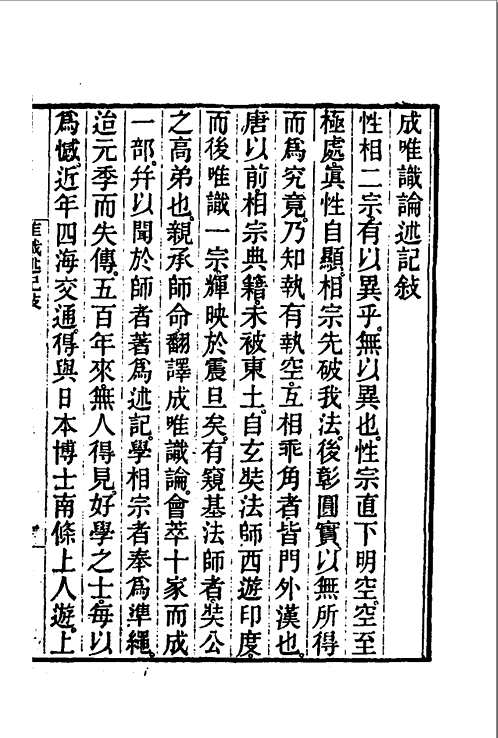 成唯識論述記敍
性相二宗有以異乎。無以異也。性宗直下明空。空至
極處。眞性自顯。相宗先破我法。後彰圓實。以無所得
而爲究竟。乃知執有執空。互相乖角者。皆門外漢也。
唐以前。相宗典籍。未被東土。自玄奘法師西遊印度。
而後唯識一宗。輝映於震旦矣。有窺基法師者。奘公
之高弟也。親承師命。翻譯成唯識論。會萃十家而成
一部。幷以聞於師者。著爲述記。學相宗者。奉爲準繩。
迨元季而失傳。五百年來。無人得見。好學之士。每以
爲憾。近年四海交通。得與日本博士南條上人遊。上
唯識述記敍